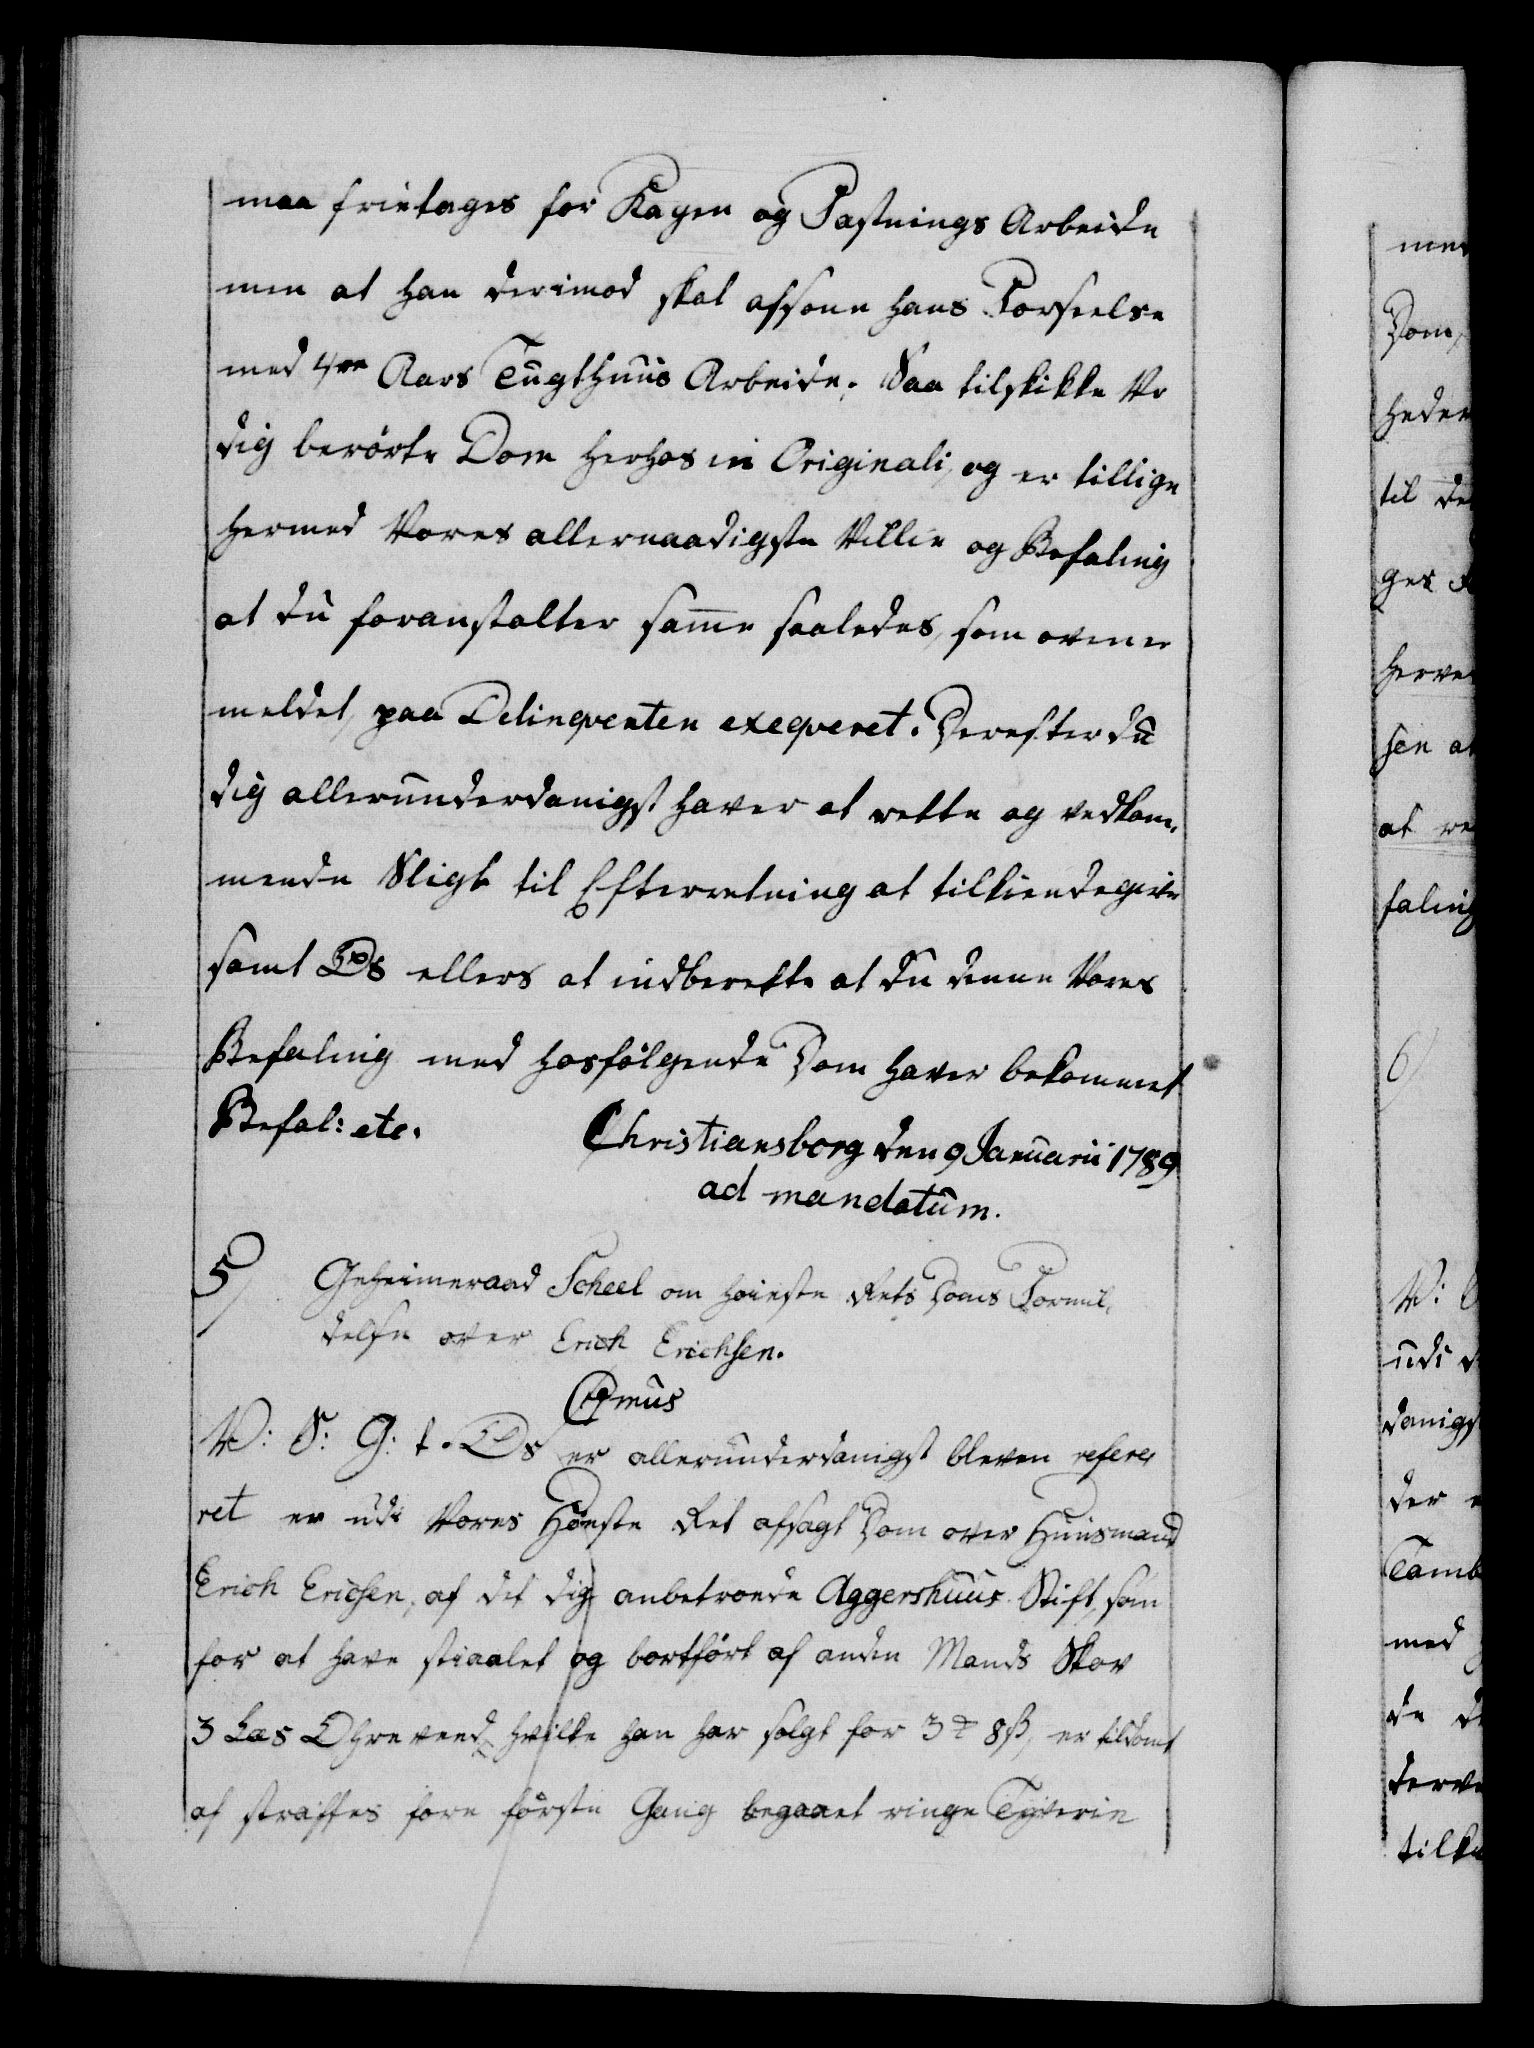 maa frietages for Kagen og Fæstnings Arbeide
men at han derimod skal afsone hans Forseelse
med 4re Aars Tugthuus Arbeide. Saa tilskikke Vi
dig berørte Dom herhos in Originali, og er tillige
hermed Vores allernaadigste Villie og Befaling
at du foranstalter samme saaledes, som oven
meldet, paa Delinqventen exeqveret. Derefter du
dig allerunderdanigst haver at rette og vedkom,
mende Sligt til Efterretning at tilkiendegive
samt Os ellers at indberette at du denne Vores
Befaling med hosfølgende Dom haver bekommet
Befal: etc.
Christiansborg den 9 Januarii 1789
ad mandatum.
5) Geheimeraad Scheel om høieste Rets Doms Formil,
delse over Erich Erichsen.
V: S: G: t. Os er allerunderdanigst bleven refere,
ret er udi Vores Høieste Ret afsagt Dom over Huusmand
Erich Erichsen, af det dig anbetroede Aggershuus Stift, som
for at have stiaalet og bortført af anden Mands Skov
3 Læs Ohreveed, hvilke han har solgt for 3 8ß, er tildømt
at straffes for første Gang begaaet ringe Tyverie
men
Dom,
heder
til de
ges
herve
sen at
at re
faling
6)
V:
udi d
danigst
der
Tamb
med
de de
derve
tilki